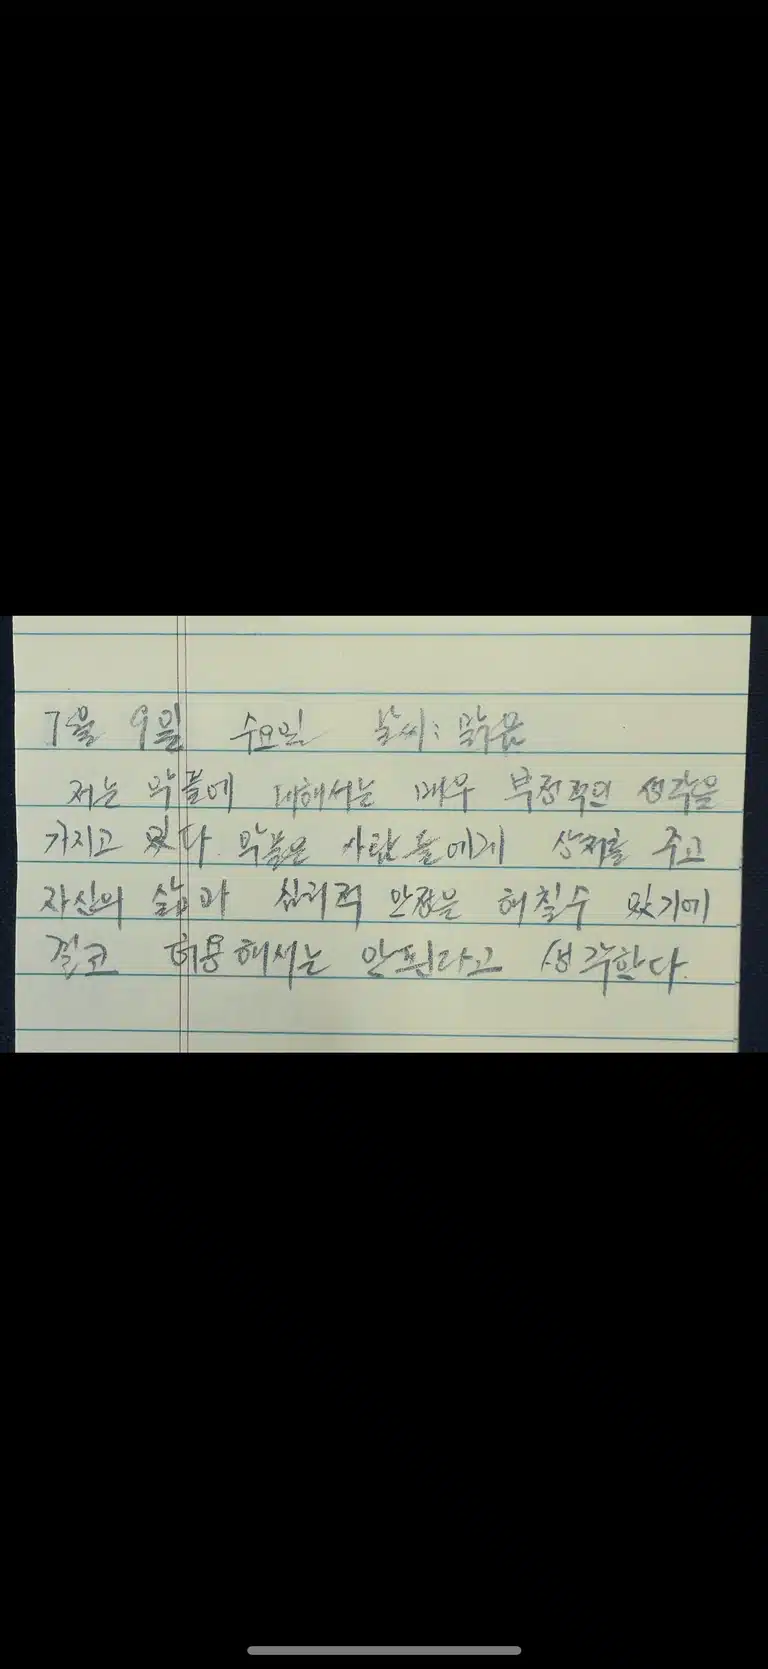 7월 9일 수요일 날씨: 맑음
저는 악플에 대해서는 매우 부정적의 생각을
가지고 있다. 악플은 사람들에게 상처를 주고
자신의 삶과 심리적 안정을 해칠수 있기에
결코 허용해서는 안된라고 생각한다.